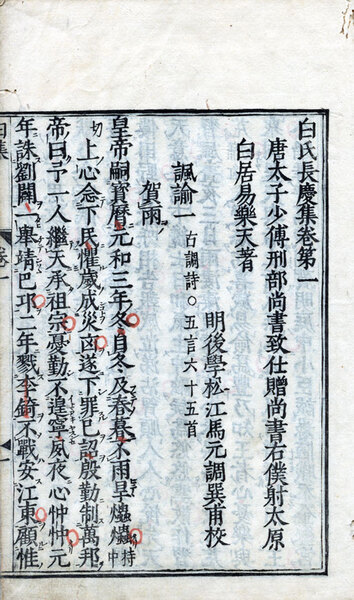 白氏長慶集卷第一
唐太子少傅刑部尚書致仕贈尚書右僕射太原
白居易樂天著
明後學松江馬元調巽甫校
諷諭一 古調詩○五言六十五首
賀雨
皇帝嗣寶曆元和三年冬自冬及春暮不雨旱爞爞持中切
上心念下民懼歲成災凶遂下罪己詔殷勤制萬邦
帝曰予一人繼天承祖宗憂勤不遑寧夙夜心忡忡元
年誅劉闢一舉靖巴邛二年戮李錡不戰安江東顧惟
白集
卷一
一